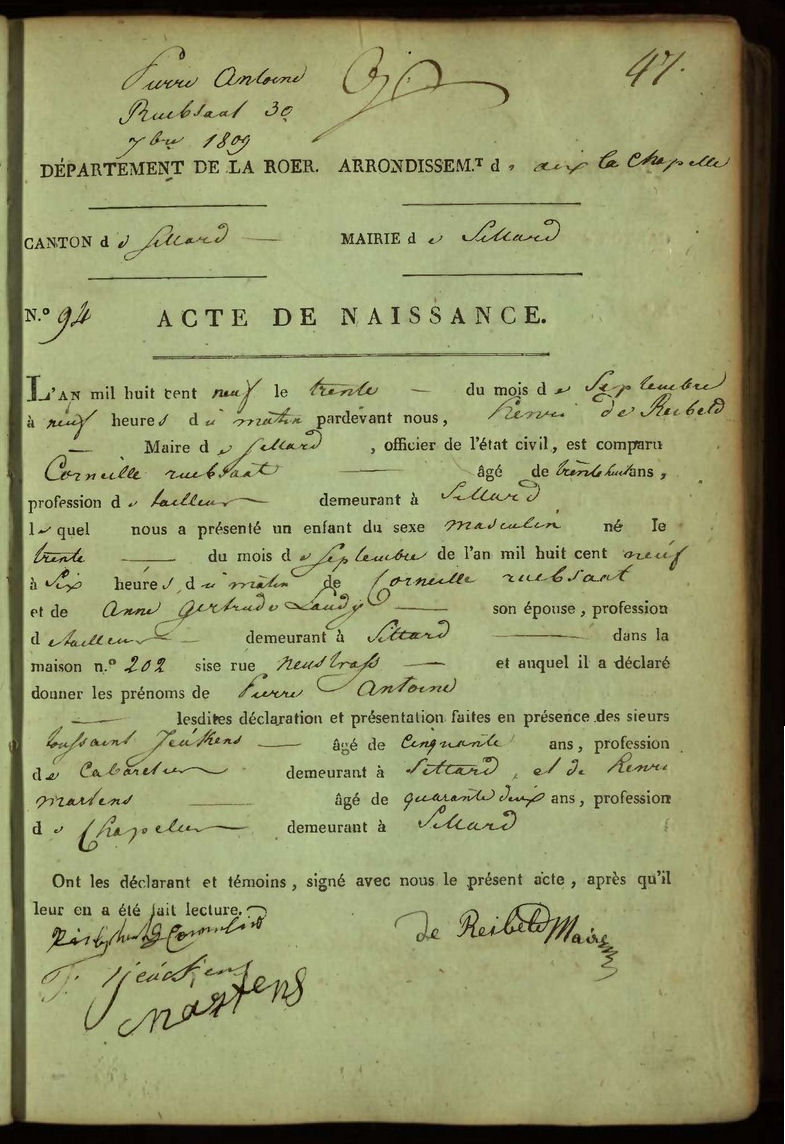 Pierre Antoine
Ruebsaat 30
7bre 1809
47.
DÉPARTEMENT DE LA ROER. ARRONDISSEM.T d' aix la Chapelle
CANTON de Sittard MAIRIE de Sittard
N.º 94 ACTE DE NAISSANCE.
L'AN mil huit cent neuf le trente du mois de Septembre
à neuf heures du matin pardevant nous, Henri de Reibeld
Maire de Sittard, officier de l'état civil, est comparu
Corneille ruebsaat âgé de trente huit ans,
profession de tailleur demeurant à Sittard
lequel nous a présenté un enfant du sexe masculin né le
trente du mois de Septembre de l'an mil huit cent neuf
à Six heures du matin de Corneille ruebsaat
et de Anne Gertrude Laudy son épouse, profession
de tailleur demeurant à Sittard dans la
maison n.º 202 sise rue neustrass et auquel il a déclaré
donner les prénoms de Pierre Antoine
lesdites déclaration et présentation faites en présence des sieurs
toussaint Jeukens âgé de Cinquante ans, profession
de Cabaretier demeurant à Sittard, et de Henri
martens âgé de quarante deux ans, profession
de Chapelier demeurant à Sittard
Ont les déclarant et témoins, signé avec nous le présent acte, après qu'il
leur en a été fait lecture.
de Reibeld Maire
Martens